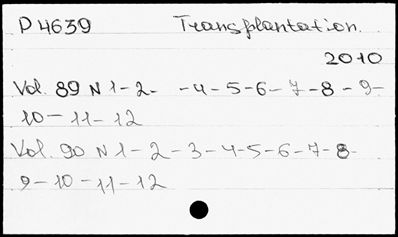 P4639 Transplantation.
2010
Vol. 89 N 1-2- -4-5-6-7-8-9-
10-11-12
Vol. 90 N 1-2-3-4-5-6-7-8-
9-10-11-12